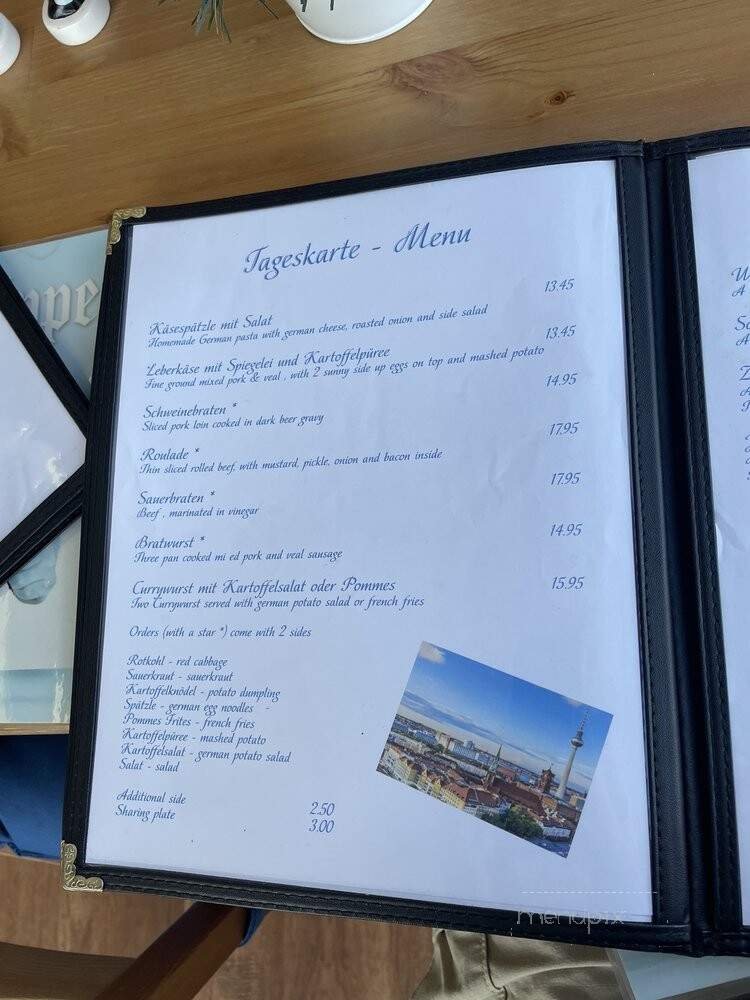 Tageskarte - Menu
13.45
Käsespätzle mit Salat
Homemade German pasta with german cheese, roasted onion and side salad
13.45
Leberkäse mit Spiegelei und Kartoffelpüree
Fine ground mixed pork & veal , with 2 sunny side up eggs on top and mashed potato
14.95
Schweinebraten *
Sliced pork loin cooked in dark beer gravy
17.95
Roulade *
Thin sliced rolled beef, with mustard, pickle, onion and bacon inside
17.95
Sauerbraten *
Beef , marinated in vinegar
14.95
Bratwurst *
Three pan cooked mi ed pork and veal sausage
15.95
Currywurst mit Kartoffelsalat oder Pommes
Two Currywurst served with german potato salad or french fries
Orders (with a star *) come with 2 sides
Rotkohl - red cabbage
Sauerkraut - sauerkraut
Kartoffelknödel - potato dumpling
Spätzle - german egg noodles -
Pommes Frites - french fries
Kartoffelpüree - mashed potato
Kartoffelsalat - german potato salad
Salat - salad
Additional side 2.50
Sharing plate 3.00
menupix